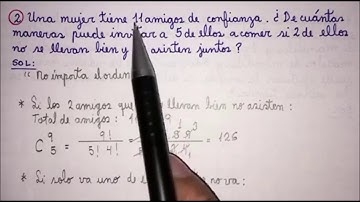 ② Una mujer tiene 11 amigos de confianza. ¿De cuántas
maneras puede invitar a 5 de ellos a comer si 2 de ellos
no se llevan bien y asisten juntos?
SOL:
"No importa el orden
* Si los 2 amigos que llevan bien no asisten:
Total de amigos: 11 9
C 9 5 = 9! / 5! 4! = = 126
* Si solo va uno de no va: